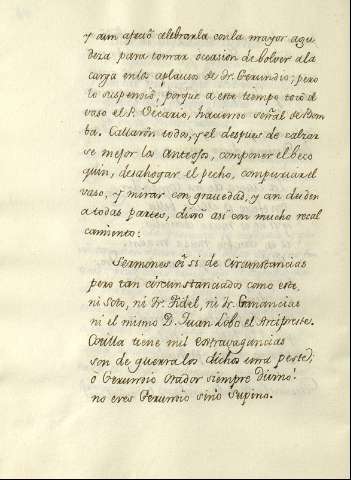 y aun afectò celebrarla con la mayor agu
deza para tomar occasion de bolver a la
carga en los aplausos de fr. Gerundio; pero
lo suspendiò, porque a este tiempo tocò el
vaso el P. Vicario, haciendo señal de Bom
ba. Callaron todos, y el despues de calzar
se mejor los anteojos, componer el beco
quin, desahogar el pecho, compurar el
vaso, y mirar con gravedad, y an deden
a todas partes, dixo asi con mucho recal
camiento:
Sermones oi ss. de circunstancias
pero tan circunstanciado como este,
ni Soto, ni Fr. Fidel, ni Fr.
ni el mismo D. Juan Lobo el Arcipreste.
tiene mil extravagancias
son de guerra los dichos una peste,
ò Gerundio Orador siempre divino!
no eres Gerundio sinò Supino.